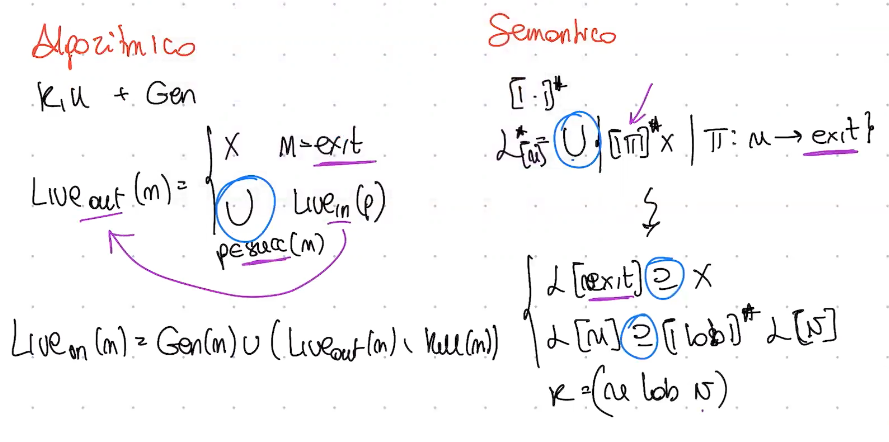 Algoritmico
Kill + Gen
Live out (n) = { X   n = exit
⋃ p∈succ(n)   Live in (p)
Live in (n) = Gen(n) ∪ (Live out(n) \ Kill(n))
Semantico
⟦·⟧#
L*[u] = ⋃ { ⟦π⟧# X | π: u → exit }
{ L[exit] ⊇ X
L[u] ⊇ ⟦lab⟧# L[v]
k = (u lab v)